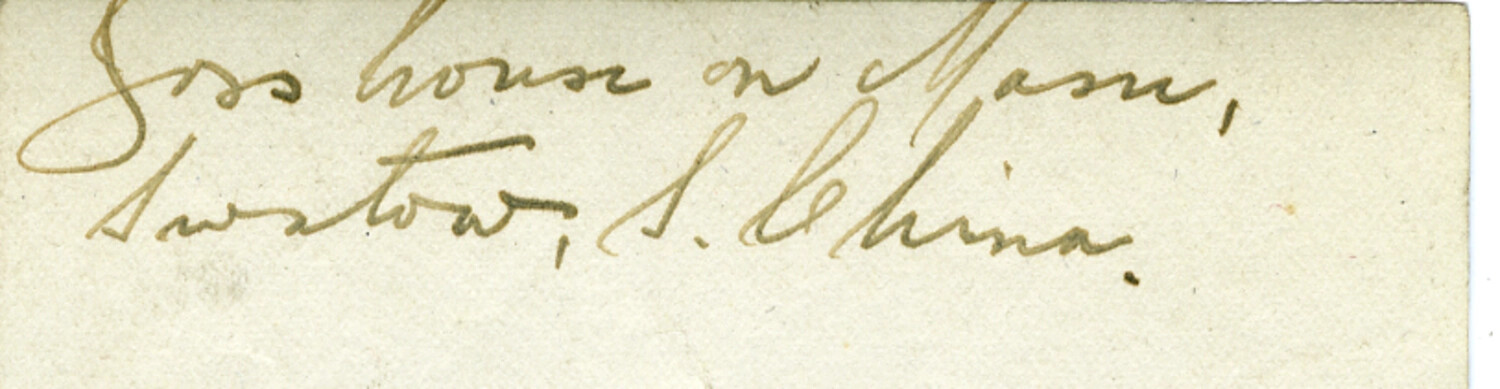 Joss house on Masu,
Swatow, S. China.